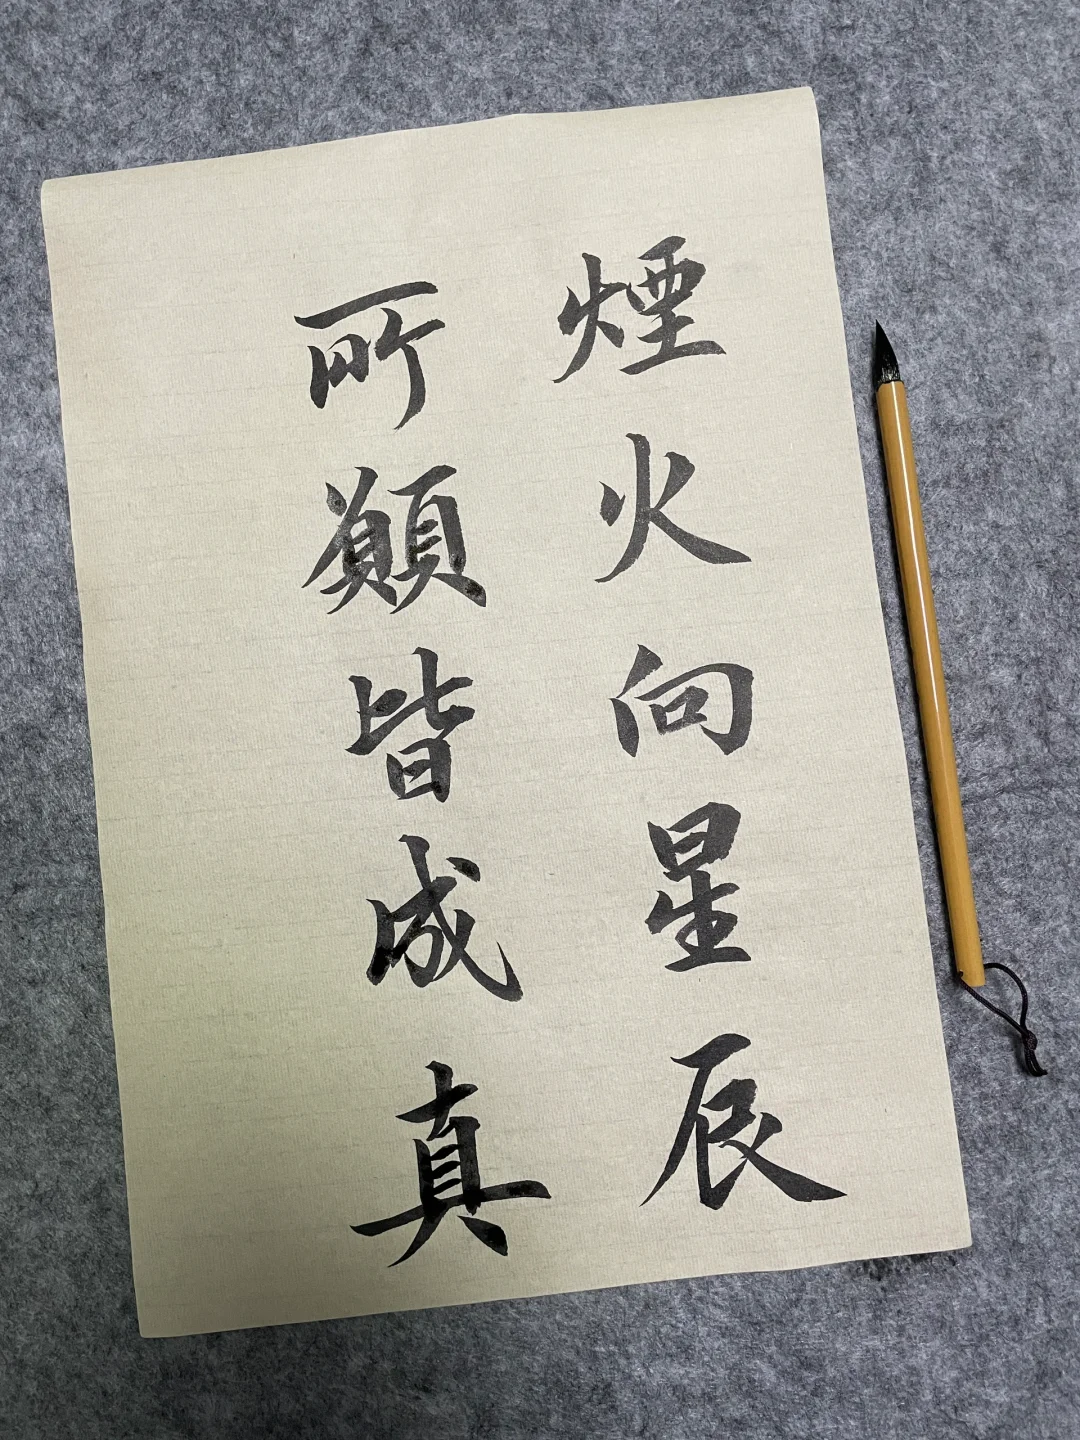 煙火向星辰
所願皆成真